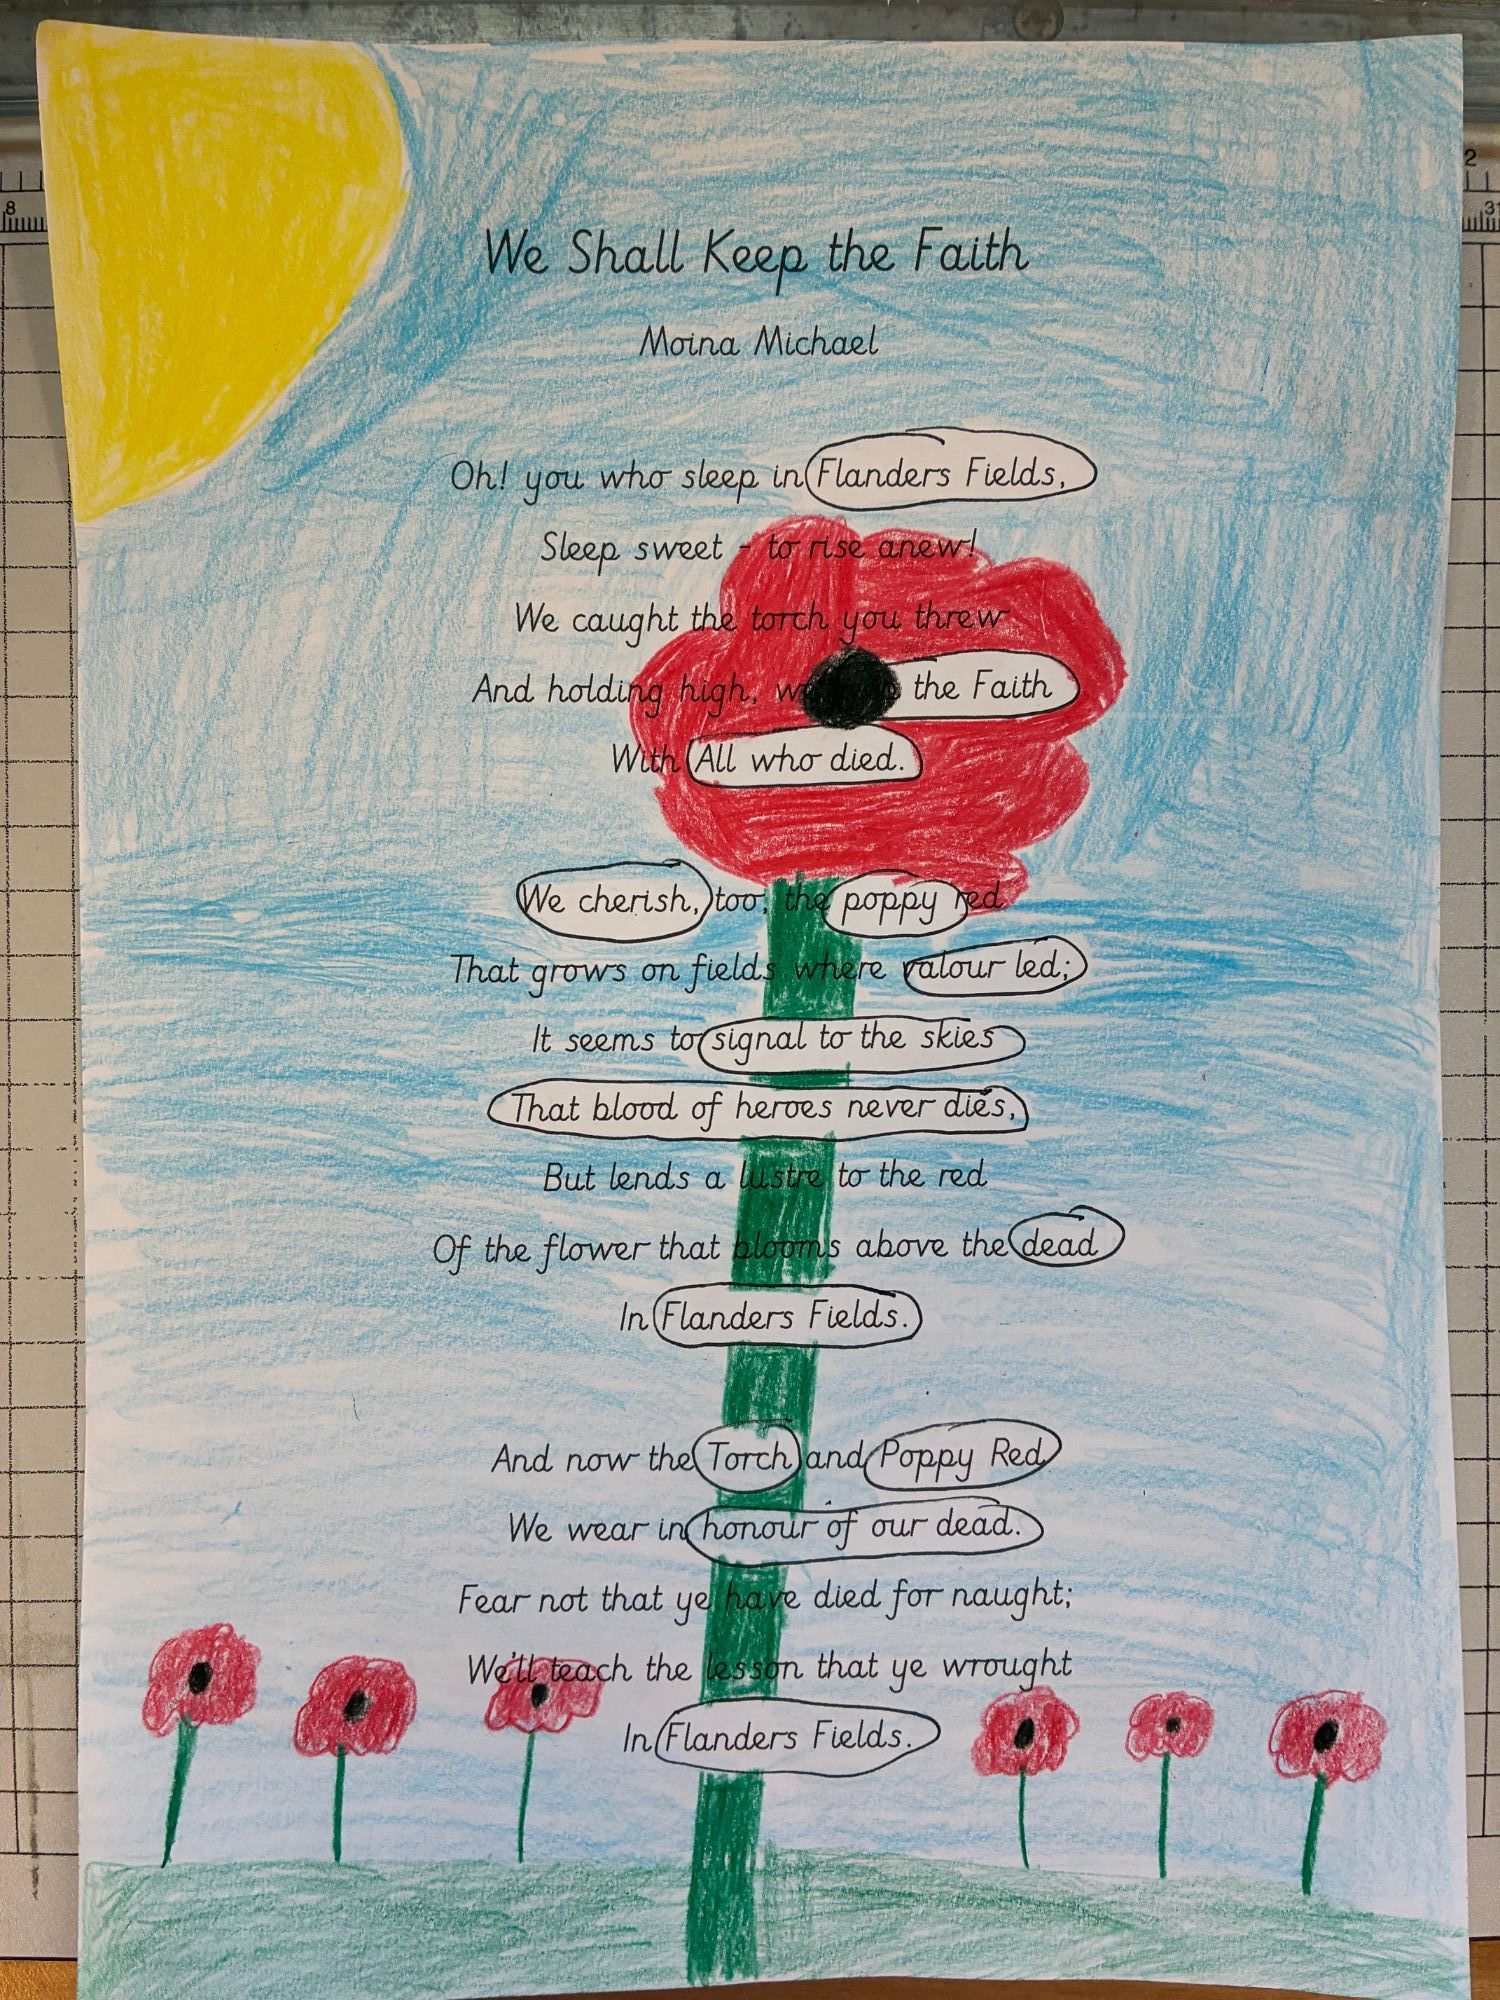 We Shall Keep the Faith
Moina Michael
Oh! you who sleep in Flanders Fields,
Sleep sweet - to rise anew!
We caught the torch you threw
And holding high, the Faith
With All who died.
We cherish, too, the poppy red
That grows on fields where valour led;
It seems to signal to the skies
That blood of heroes never dies,
But lends a lustre to the red
Of the flower that blooms above the dead
In Flanders Fields.
And now the Torch and Poppy Red
We wear in honour of our dead.
Fear not that ye have died for naught;
We'll teach the lesson that ye wrought
In Flanders Fields.
8
2
31